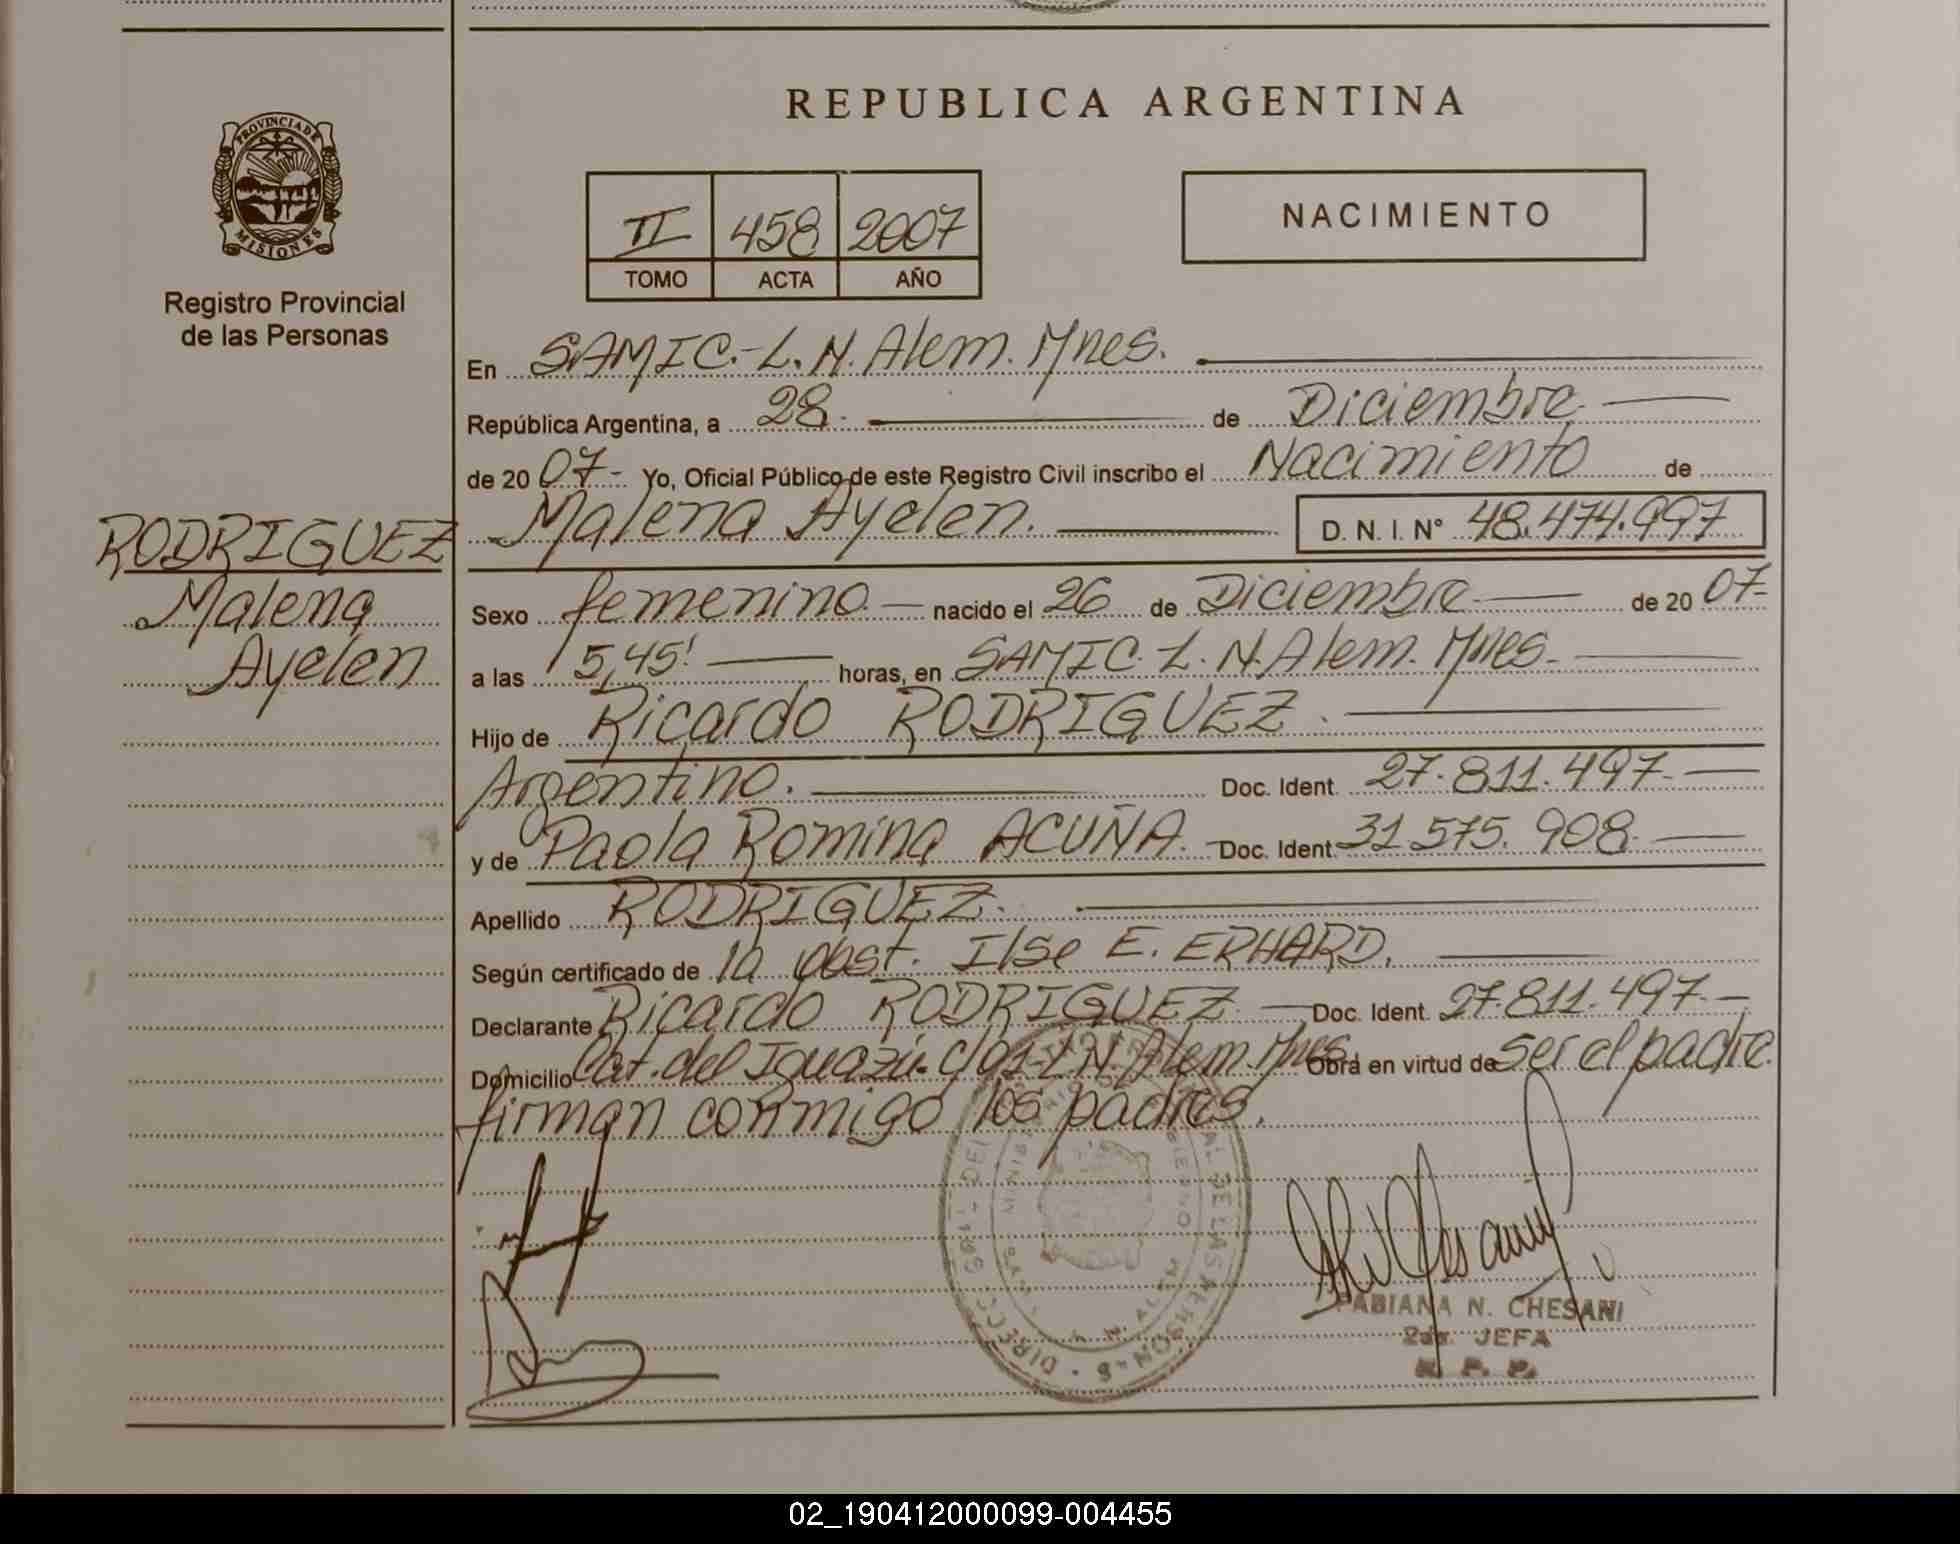 REPUBLICA ARGENTINA
PROVINCIA DE
MISIONES
Registro Provincial
de las Personas
II 458 2007
TOMO ACTA AÑO
NACIMIENTO
En SAMIC.-L.N.Alem.Mnes.
República Argentina, a 28- de Diciembre-
de 2007- Yo, Oficial Público de este Registro Civil inscribo el Nacimiento de
Malena Ayelen. D. N. I. Nº 48.474.997
RODRIGUEZ
Malena
Ayelen
Sexo femenino.- nacido el 26 de Diciembre- de 2007-
a las 5,45' horas, en SAMIC. L.N.Alem. Mnes-
Hijo de Ricardo RODRIGUEZ.
Argentino. Doc. Ident. 27.811.497-
y de Paola Romina ACUÑA.- Doc. Ident. 31.575.908-
Apellido RODRIGUEZ.
Según certificado de la obst. Ilse E. ERHARD.
Declarante Ricardo RODRIGUEZ - Doc. Ident. 27.811.497.-
Domicilio Cat. del Iguazú- L.N.Alem.Mnes Obra en virtud de ser el padre.
firman conmigo los padres.
FABIANA N. CHESANI
2da. JEFA
R. P. P.
02_190412000099-004455